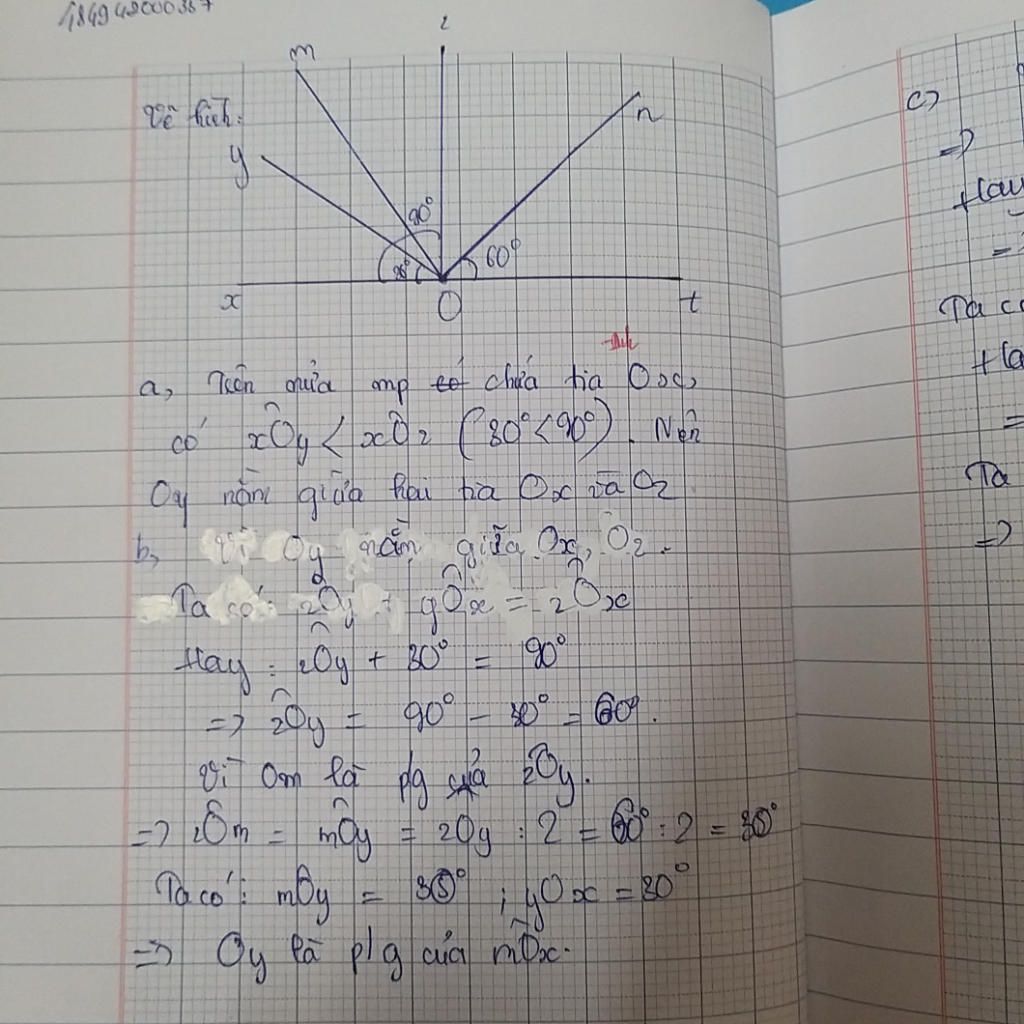 184948000357
m
z
Vẽ hình:
n
y
90°
30°
60°
x
O
t
tinh
a, Trên nửa mp có chứa tia Ox,
có xÔy < xÔz (30° < 90°). Nên
Oy nằm giữa hai tia Ox và Oz
b, Vì Oy nằm giữa Ox, Oz.
Ta có: zÔy + yÔx = zÔx
Hay: zÔy + 30° = 90°
=> zÔy = 90° - 30° = 60°.
Vì Om là p/g của zÔy.
=> zÔm = mÔy = zOy : 2 = 60° : 2 = 30°
Ta có: mÔy = 30° ; yOx = 30°
=> Oy là p/g của mÔx.
c)
=>
+ Hay
=
Ta có
+
=
Ta
=>